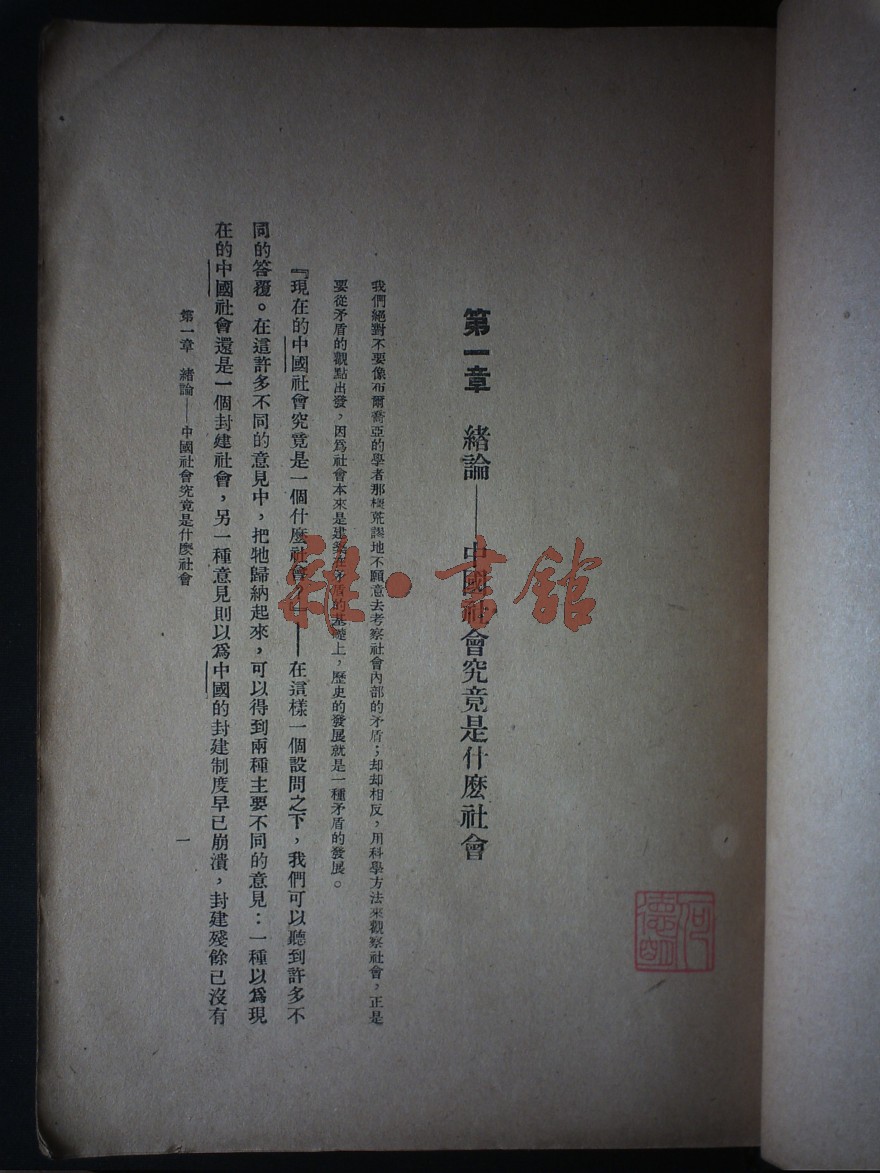 第一章　緒論——中國社會究竟是什麽社會
我們絕對不要像布爾喬亞的學者那樣荒謬地不願意去考察社會內部的矛盾；却却相反，用科學方法來觀察社會，正是
要從矛盾的觀點出發，因爲社會本來是建築在矛盾的基礎上，歷史的發展就是一種矛盾的發展。
『現在的中國社會究竟是一個什麽社會？』——在這樣一個設問之下，我們可以聽到許多不
同的答覆。在這許多不同的意見中，把牠歸納起來，可以得到兩種主要不同的意見：一種以爲現
在的中國社會還是一個封建社會，另一種意見則以爲中國的封建制度早已崩潰，封建殘餘已沒有
第一章　緒論——中國社會究竟是什麽社會
一
雜·書館
何德明